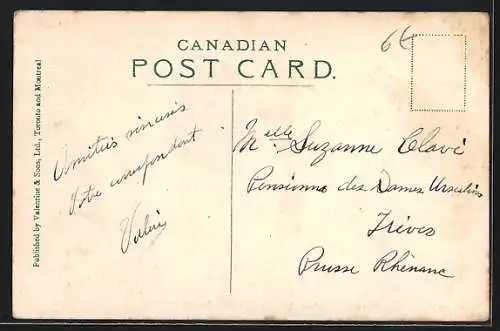 CANADIAN
POST CARD.
6€
Published by Valentine & Sons, Ltd., Toronto and Montreal
Amitiés sincères
Votre correspondant
Valéry
Melle Suzanne Clavé
Pensionna des Dames Ursulines
Trèves
Prusse Rhénane